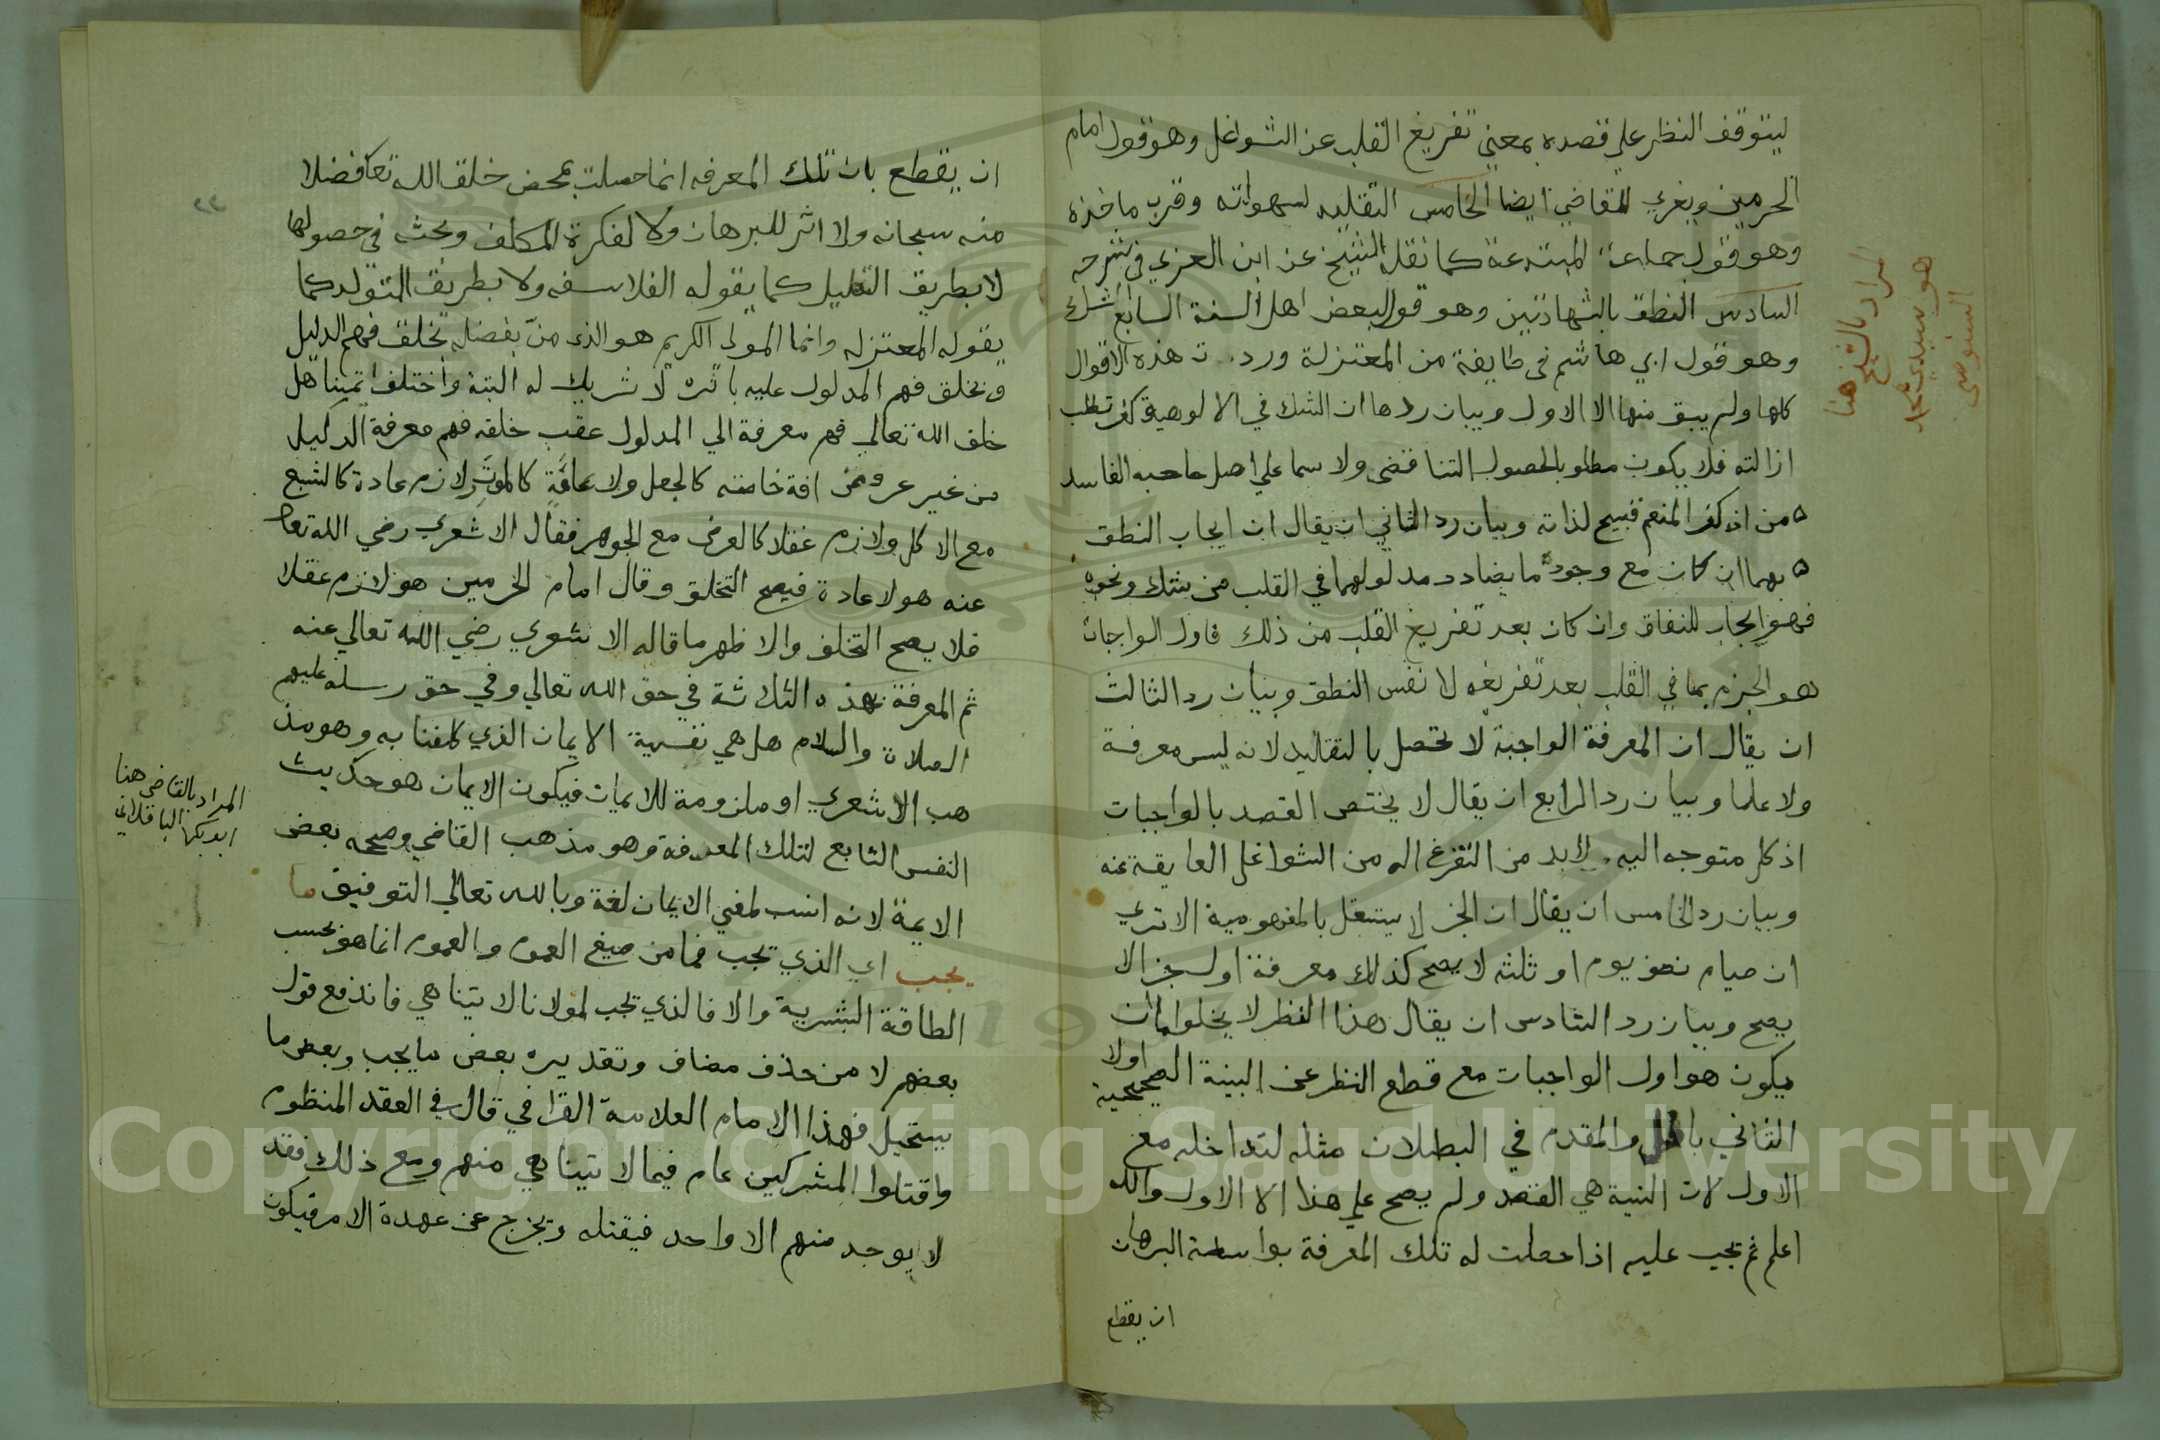 ليتوقف النظر علي قصده بمعني تفريغ القلب عن الشواغل وهو قول امام
الحرمين ويعزي للقاضي ايضا الخامس التقليد لسهولته وقرب ماخذه
وهو قول جماعة المبتدعة كما نقل الشيخ عن ابن العربي في شرحه
السادس النطق بالشهادتين وهو قول لبعض اهل السنة السابع الشك
وهو قول ابي هاشم في طايفة من المعتزلة ورد ت هذه الاقوال
كلها ولم يبق منها الا الاول وبيان ردها ان الشك في الالوهية كفر تطلب
ازالته فلا يكون مطلوبا لحصول التناقض ولا سما علي اصل صاحبه الفاسد
من ان كفر المنعم قبيح لذاته وبيان رد الثاني ان يقال ان ايجاب النطق
بهما ان كان مع وجود ما يضادد مدلولهما في القلب من شك ونحوه
فهو ايجاب للنفاق وان كان بعد تفريغ القلب من ذلك فاول الواجبات
هو الجزم بما في القلب بعد تفريغه لا نفس النطق وبيان رد الثالث
ان يقال ان المعرفة الواجبة لا تحصل بالتقليد لانه ليس معرفة
ولا علما وبيان رد الرابع ان يقال لا يختص القصد بالواجبات
اذ كل متوجه اليه لابد من التفرغ اله من الشواغل العايقة عنه
وبيان رد الخامس ان يقال ان الجز لا يستقل بالمفهومية الا تري
ان صيام نصف يوم او ثلثه لا يصح كذلك معرفة اول جز الا
يصح وبيان رد السادس ان يقال هذا النظر لا يخلوا اما ان
يكون هو اول الواجبات مع قطع النظر عن البينة الصحيحة اولا
الثاني باطل والمقدم في البطلان مثله لتداخله مع
الاول لان النية هي القصد ولم يصح علي هذا الا الاول والله
اعلم ثم تجب عليه اذا حصلت له تلك المعرفة بواسطة البرهان
ان يقطع
المراد بالشيخ هنا
هو سيدي محمد
السنوسي
ان يقطع بان تلك المعرفه انما حصلت بمحض خلق الله تعا فضلا
منه سبحانه ولا اثر للبرهان ولا لفكرة المكلف وبحثه في حصولها
لا بطريق التعليل كما يقوله الفلاسفه ولا بطريق التولد كما
يقوله المعتزله وانما المولي الكريم هو الذي منّ بفضله بخلق فهم الدليل
وبخلق فهم المدلول عليه باثره لا شريك له البتة واختلف ائمتنا هل
خلق الله تعالي فهم معرفة الي المدلول عقب خلقه فهم معرفة الدليل
من غير عروض افة خاصته كالجهل ولا عامَّة كالموت لازم عادة كالشبع
مع الاكل ولازم عقلا كالعرض مع الجوهر فقال الاشعري رضي الله تعا
عنه هو لا عادة فيصح التخلق وقال امام الحرمين هو لازم عقلا
فلا يصح التخلف والاظهر ما قاله الاشعري رضي الله تعالي عنه
ثم المعرفة بهذه الثلاثة في حق الله تعالي وفي حق رسله عليهم
الصلاة والسلام هل هي نفسية الايمان الذي كلفنا به وهو مذ
هب الاشعري او ملزومة للايمان فيكون الايمان هو حديث
النفس التابع لتلك المعرفة وهو مذهب القاضي وصححه بعض
الايمة لانه انسب لمعني الايمان لغة وبالله تعالي التوفيق ما
يجب اي الذي تجب فما من صيغ العموم والعموم انما هو بحسب
الطاقة البشرية والا فالذي تجب لمولانا لا يتناهي فاندفع قول
بعضهم لا من حذف مضاف وتقديره بعض ما يجب وبعض ما
يستحيل فهذا الامام العلامة القرافي قال في العقد المنظوم
واقتلوا المشركين عام فيما لا يتناهي منهم ومع ذلك فقد
لا يوجد منهم الا واحد فيقتله ويخرج عن عهدة الامر فيكون
المراد بالقاضي هنا
ابو بكر الباقلاني
Copyright © King Saud University